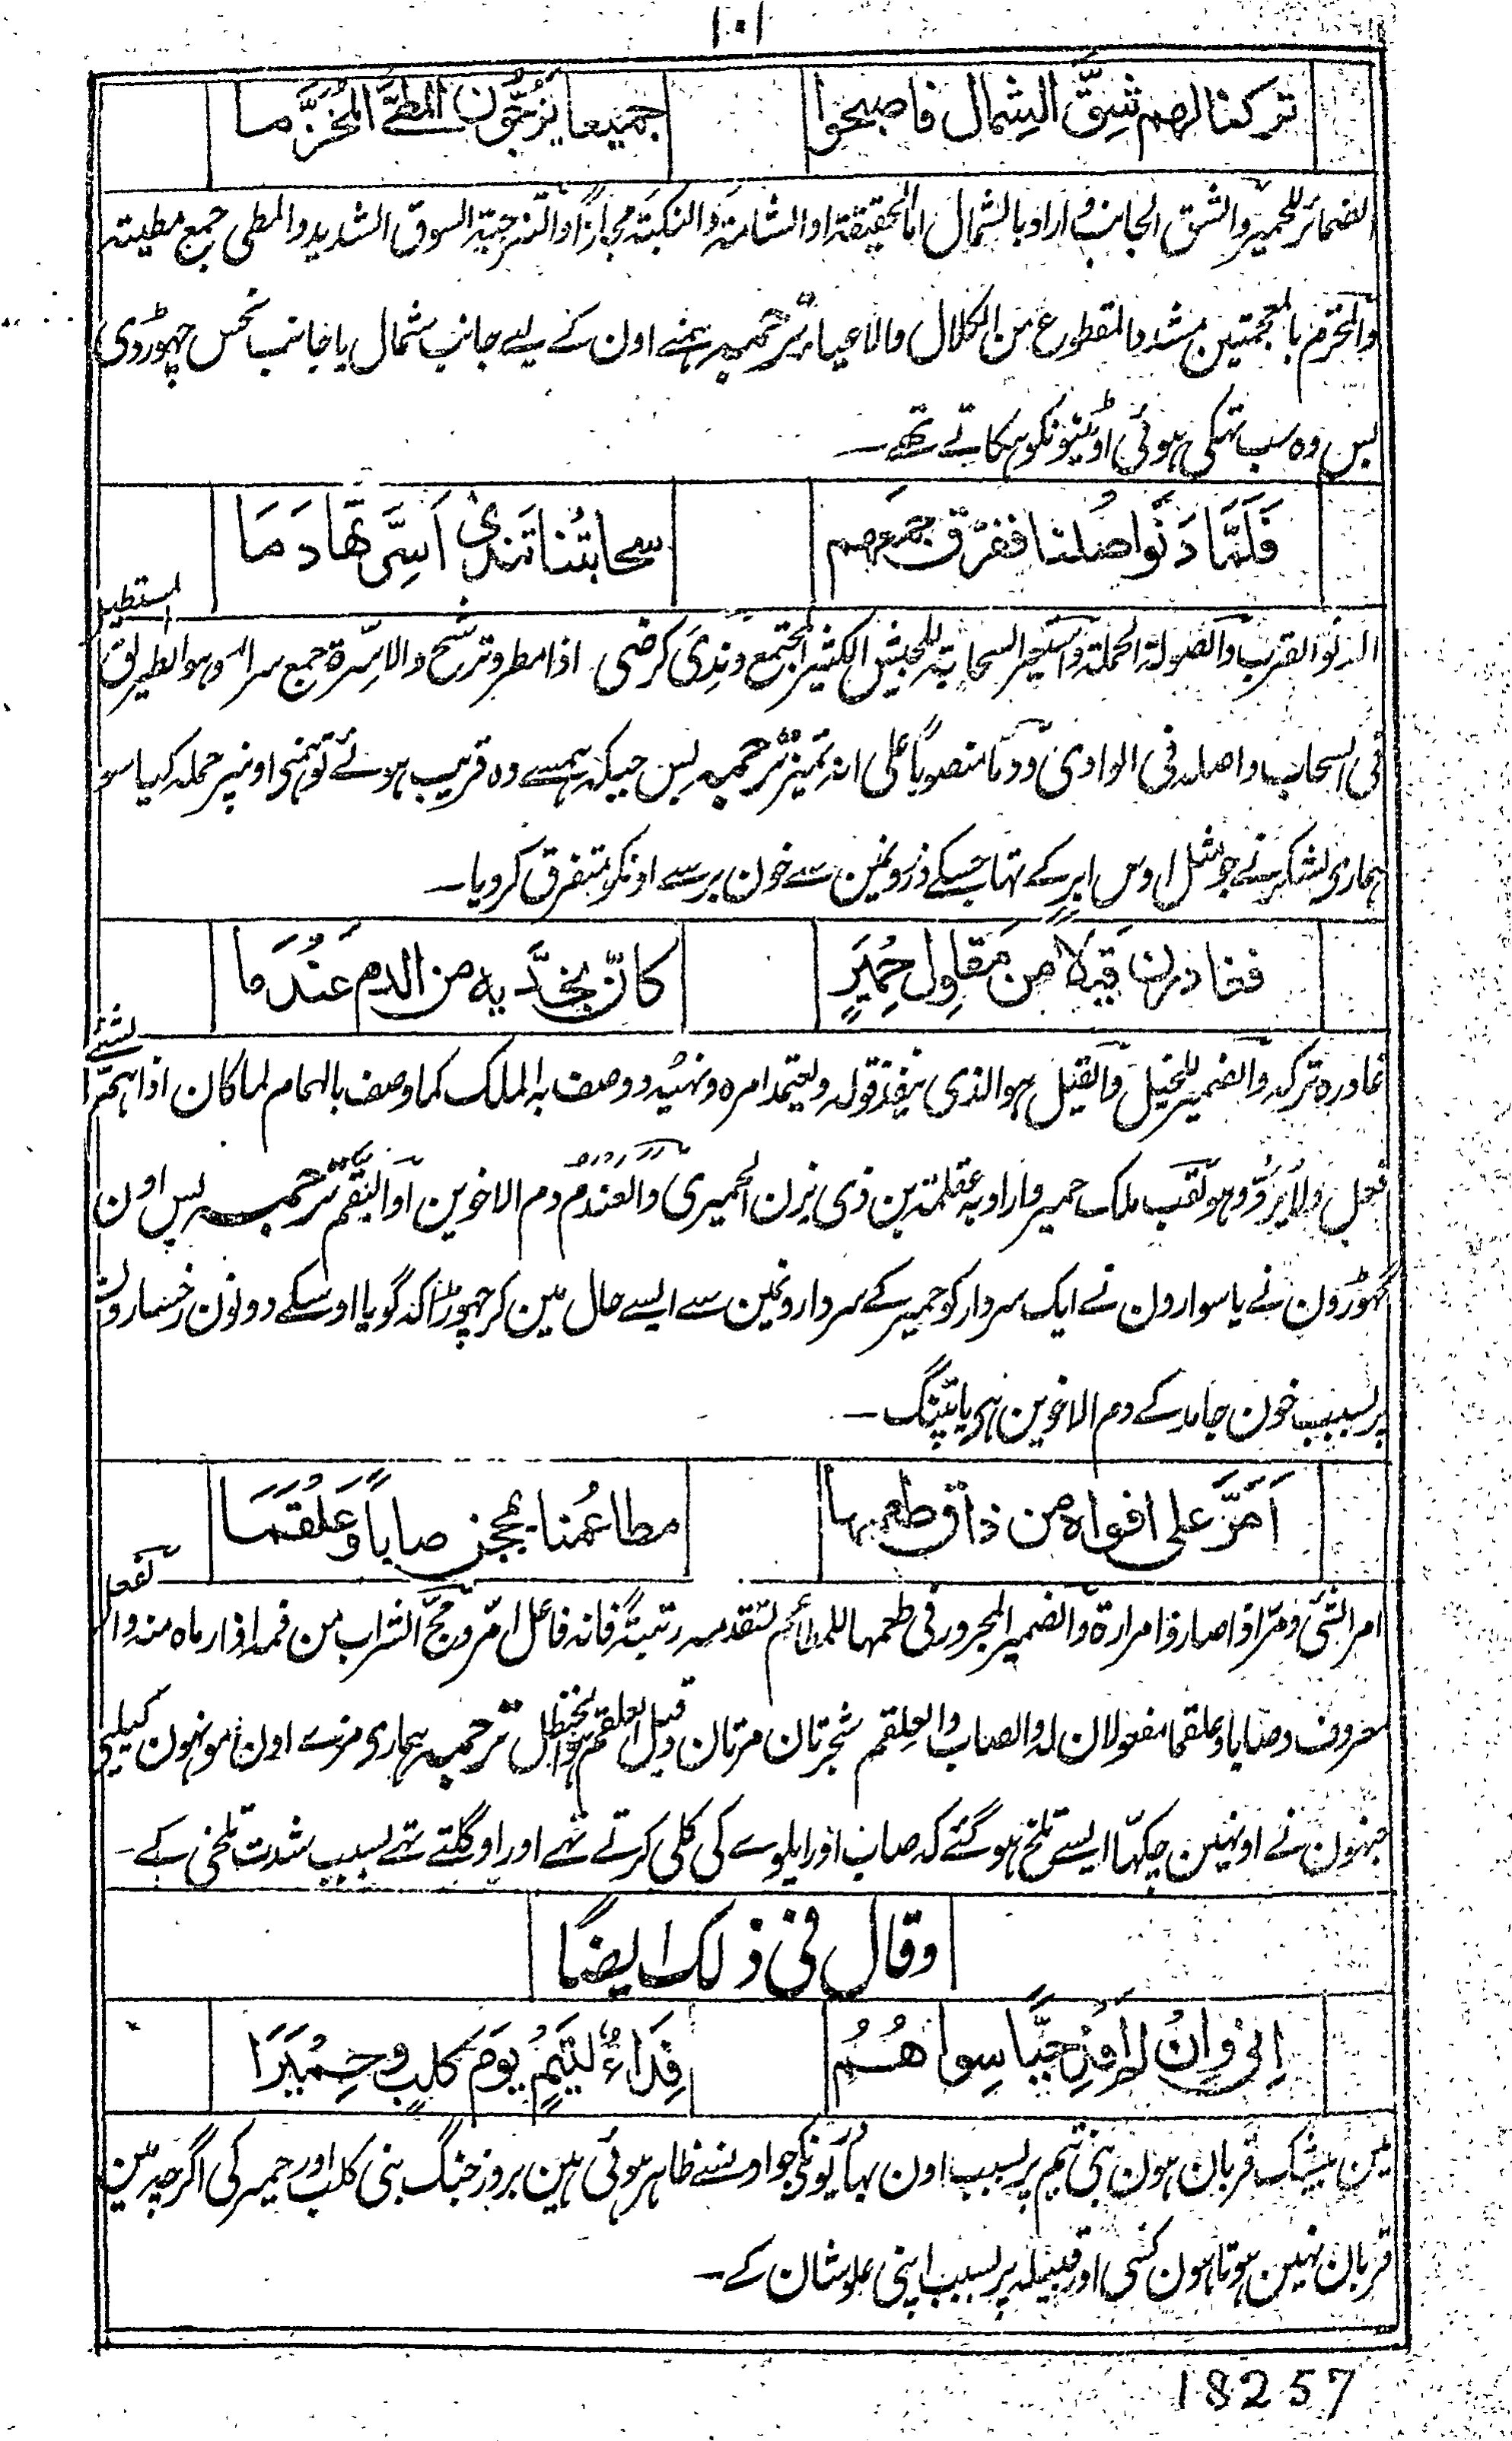 ۱۰۱
تركنا لهم شِقَّ الشِمال فاصبحوا جميعا يُزجّون المطيَّ المُخزَّما
الضمائر للحمير والشق الجانب و اراد بالشمال اما الحقيقة او الشامة والنكبة مجازًا والتزجية السوق الشديد والمطی جمع مطية
والمخزم بالمعجمتين مشددا المقطوع من الكلال والاعياء ترجمہ ہمنے اون کے لیے جانب شمال یا جانب نحس چہوڑدی
پس وہ سب تہکی ہوئی اونٹیونکو ہکاتے تھے ــ
فَلَمَّا دَنَوا صُلنا ففرّق جمعَهم سحابتُنا تَندىٰ اَسِرَّتُها دَمَا
الدنو القرب والصولة الحملة واستعير السحابة للجيش الكثير المجتمع وندِیَ كرضی اذا مطر وترشح والاسِرّة جمع سرار وهو الطريق المستطير
فی السحاب واصله فی الوادی ودما منصوبًا علی انه تميز ترجمہ پس جبکہ ہمسے وہ قریب ہوئے تو ہمنی اونپر حملہ کیا سو
ہماری لشکر نے جو مثل اوس ابر کے تہا جسکے ذرونمین سے خون برسے اونکو متفرق کردیا ــ
فغادرن قيلاً من مَقاوِل حِميَرٍ كانّ بخدَّيه من الدم عَندَما
غادره تركه والضمير للخيل والقيل هو الذی ينفذ قوله ويعتمد امره ونهيه ووصف به الملك كما وصف بالهمام لما كان اذا اهمّ لشیٔ
افعل ولا يردّ وهو لقب ملك حمير و اراد به علقمة بن ذی يزن الحميری والعندم دم الاخوين او البقم ترجمہ پس اون
گہوڑون نے یا سوارون نے ایک سردار کو حمیر کے سردارونمین سے ایسے حال مین کر چہوڑا کہ گویا اوسکے دونون رخسارون
پر بسبب خون جامد کے دم الاخوین ہی یا پتنگ ــ
اَمَرَّ على افواه من ذاق طعمها مطاعمُنا يمججن صابًا وعَلقَمَا
امر الشیٔ ومرّ اذا صار ذا مرارة والضمير المجرور فی طعمها للمطاعم لتقدمه رتبةً فانه فاعل امرّ ومجّ الشراب من فمه اذا رماه منه والفعل
معروف وصابا وعلقما مفعولان له والصاب والعلقم شجرتان مرتان وقيل العلقم هو الحنظل ترجمہ ہماری مزے اون مونہون کیلیے
جنہون نے اونہین چکہا ایسے تلخ ہوگئے کہ صاب اور ایلوے کی کلی کرتے تہے اور اوگلتے تہے بسبب شدت تلخی کے ــ
وقال فی ذلك ايضًا
اِنّی وان لم اَفدِ حيًّا سِواهُمُ فِدَاءٌ لتَيمٍ يومَ كلبٍ وحِميَرَا
مین بیشک قربان ہون بنی تیم پر بسبب اون بہائیونکی جو اونسے ظاہر ہوئی ہین بروز جنگ بنی کلب اور حمیر کی اگرچہ مین
قربان نہین ہوتا ہون کسی اور قبیلہ پر بسبب اپنی علو شان کے ــ
18257